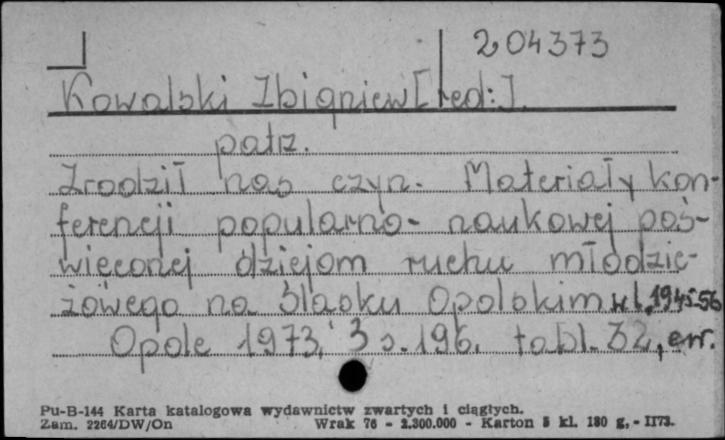 204373
Kowalski Zbigniew [red:].
patrz.
Zrodził nas czyn. Materiały kon-
ferencji popularno-naukowej poś-
więconej dziejom ruchu młodzie-
żowego na Śląsku Opolskim w l. 1945-56
Opole 1973, s. 196. tabl. 32, err.
Pu-B-144 Karta katalogowa wydawnictw zwartych i ciągłych.
Zam. 2264/DW/On Wrak 76 - 2.300.000 - Karton 5 kl. 180 g, - II73.